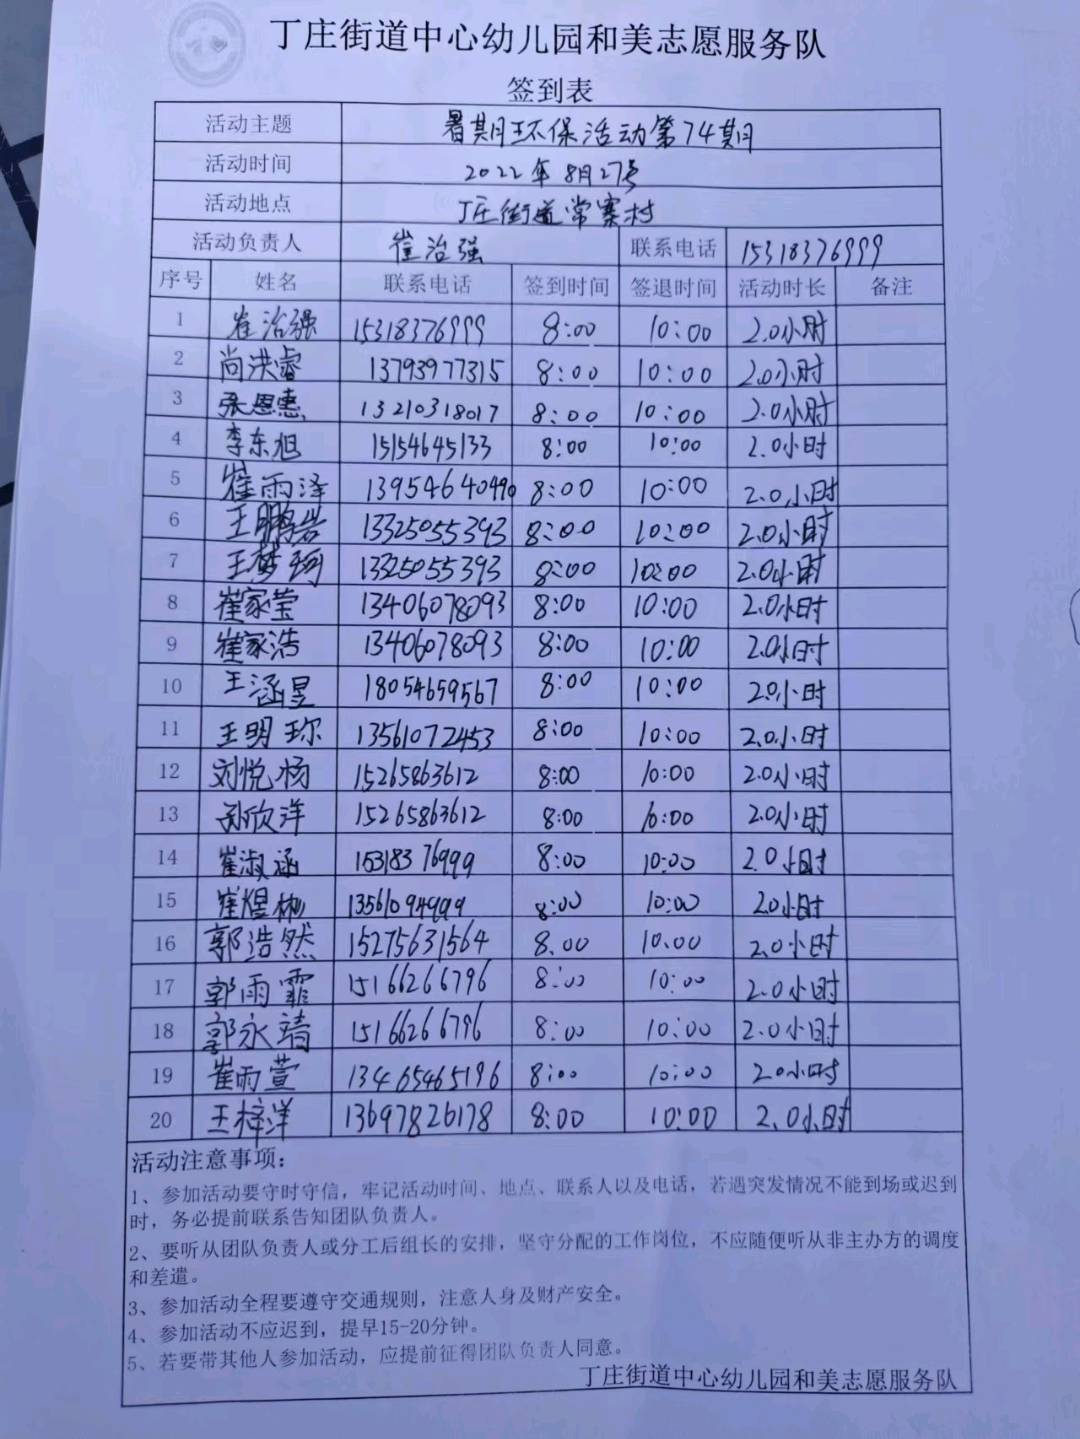 丁庄街道中心幼儿园和美志愿服务队
签到表
活动主题 暑期环保活动第74期
活动时间 2022年8月27号
活动地点 丁庄街道常寨村
活动负责人 崔治强 联系电话 15318376999
序号 姓名 联系电话 签到时间 签退时间 活动时长 备注
1 崔治强 15318376999 8:00 10:00 2.0小时
2 尚洪睿 13793977315 8:00 10:00 2.0小时
3 张恩惠 13210318017 8:00 10:00 2.0小时
4 李东旭 15154645133 8:00 10:00 2.0小时
5 崔雨泽 13954640490 8:00 10:00 2.0小时
6 王鹏岩 13325055393 8:00 10:00 2.0小时
7 王梦珂 13325055393 8:00 10:00 2.0小时
8 崔家莹 13406078093 8:00 10:00 2.0小时
9 崔家浩 13406078093 8:00 10:00 2.0小时
10 王涵昱 18054659567 8:00 10:00 2.0小时
11 王明珎 13561072453 8:00 10:00 2.0小时
12 刘悦杨 15265863612 8:00 10:00 2.0小时
13 孙欣洋 15265863612 8:00 10:00 2.0小时
14 崔淑涵 15318376999 8:00 10:00 2.0小时
15 崔煜彬 13561094999 8:00 10:00 2.0小时
16 郭浩然 15275631564 8.00 10.00 2.0小时
17 郭雨霏 15166266796 8:00 10:00 2.0小时
18 郭永靖 15166266796 8:00 10:00 2.0小时
19 崔雨萱 13465465196 8:00 10:00 2.0小时
20 王梓洋 13697826178 8:00 10:00 2.0小时
活动注意事项：
1、参加活动要守时守信，牢记活动时间、地点、联系人以及电话，若遇突发情况不能到场或迟到
时，务必提前联系告知团队负责人。
2、要听从团队负责人或分工后组长的安排，坚守分配的工作岗位，不应随便听从非主办方的调度
和差遣。
3、参加活动全程要遵守交通规则，注意人身及财产安全。
4、参加活动不应迟到，提早15-20分钟。
5、若要带其他人参加活动，应提前征得团队负责人同意。
丁庄街道中心幼儿园和美志愿服务队